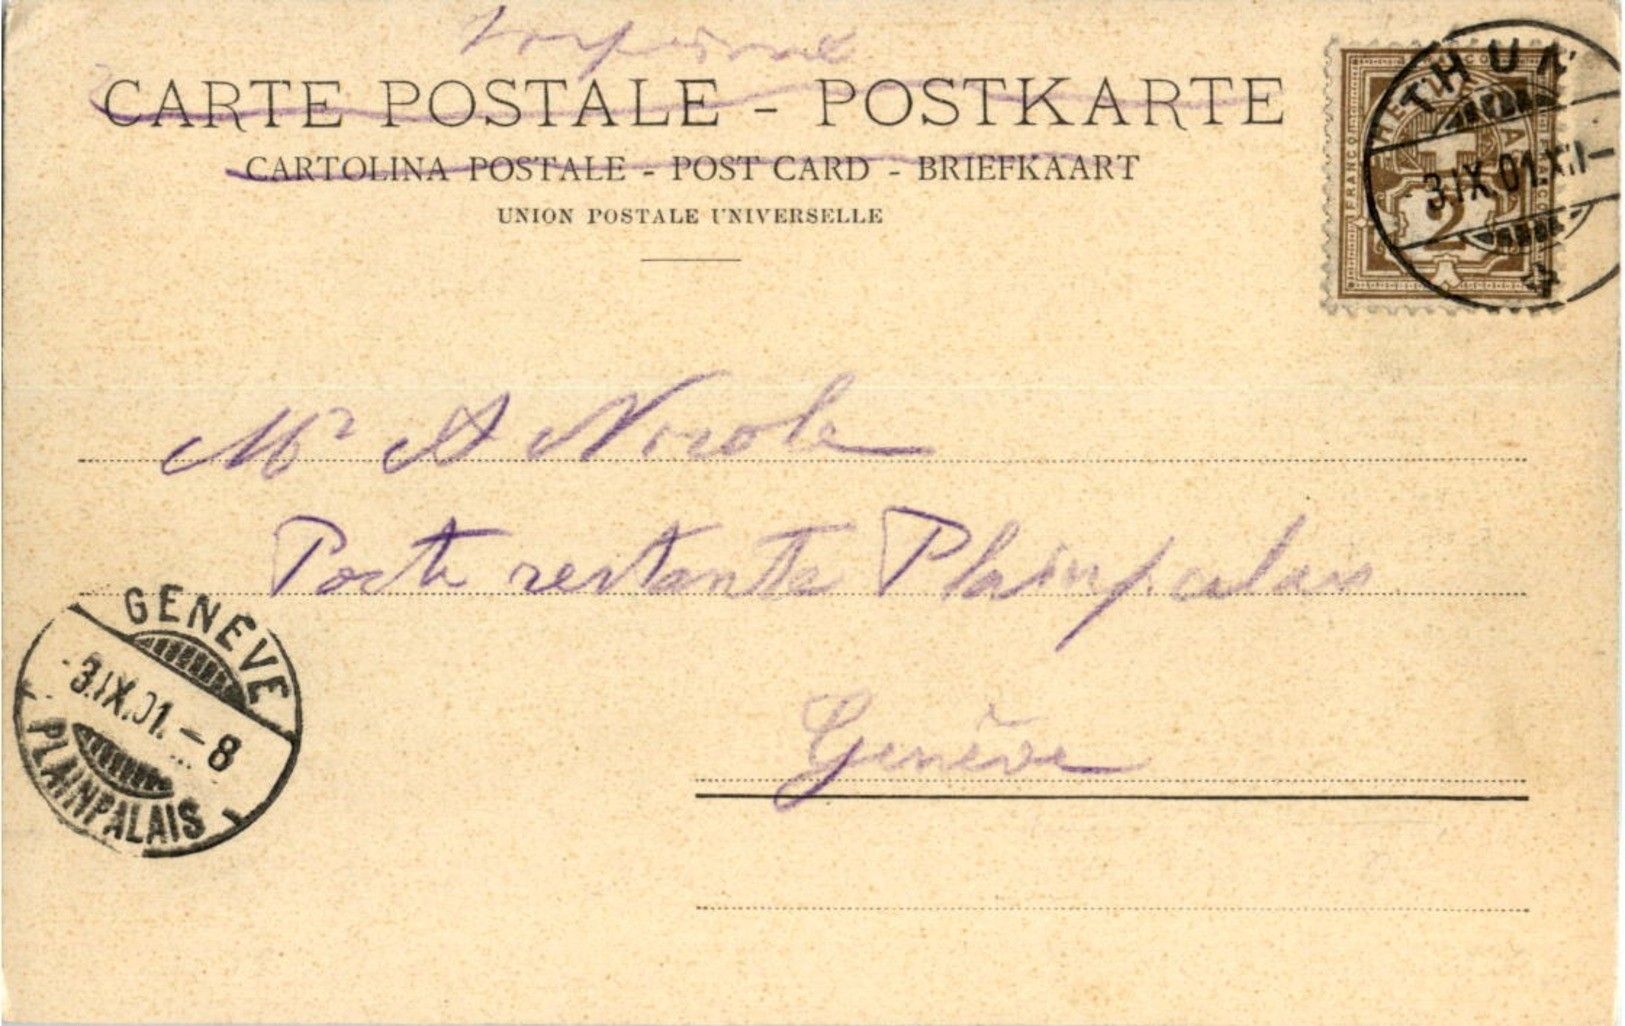 Imprimé
CARTE POSTALE - POSTKARTE
CARTOLINA POSTALE - POST CARD - BRIEFKAART
UNION POSTALE UNIVERSELLE
HELVETIA
FRANCO
2
THUN
3.IX.01.XI-
Mr A Nicole
Poste restante Plainpalais
Genève
GENÈVE
3.IX.01.-8
PLAINPALAIS